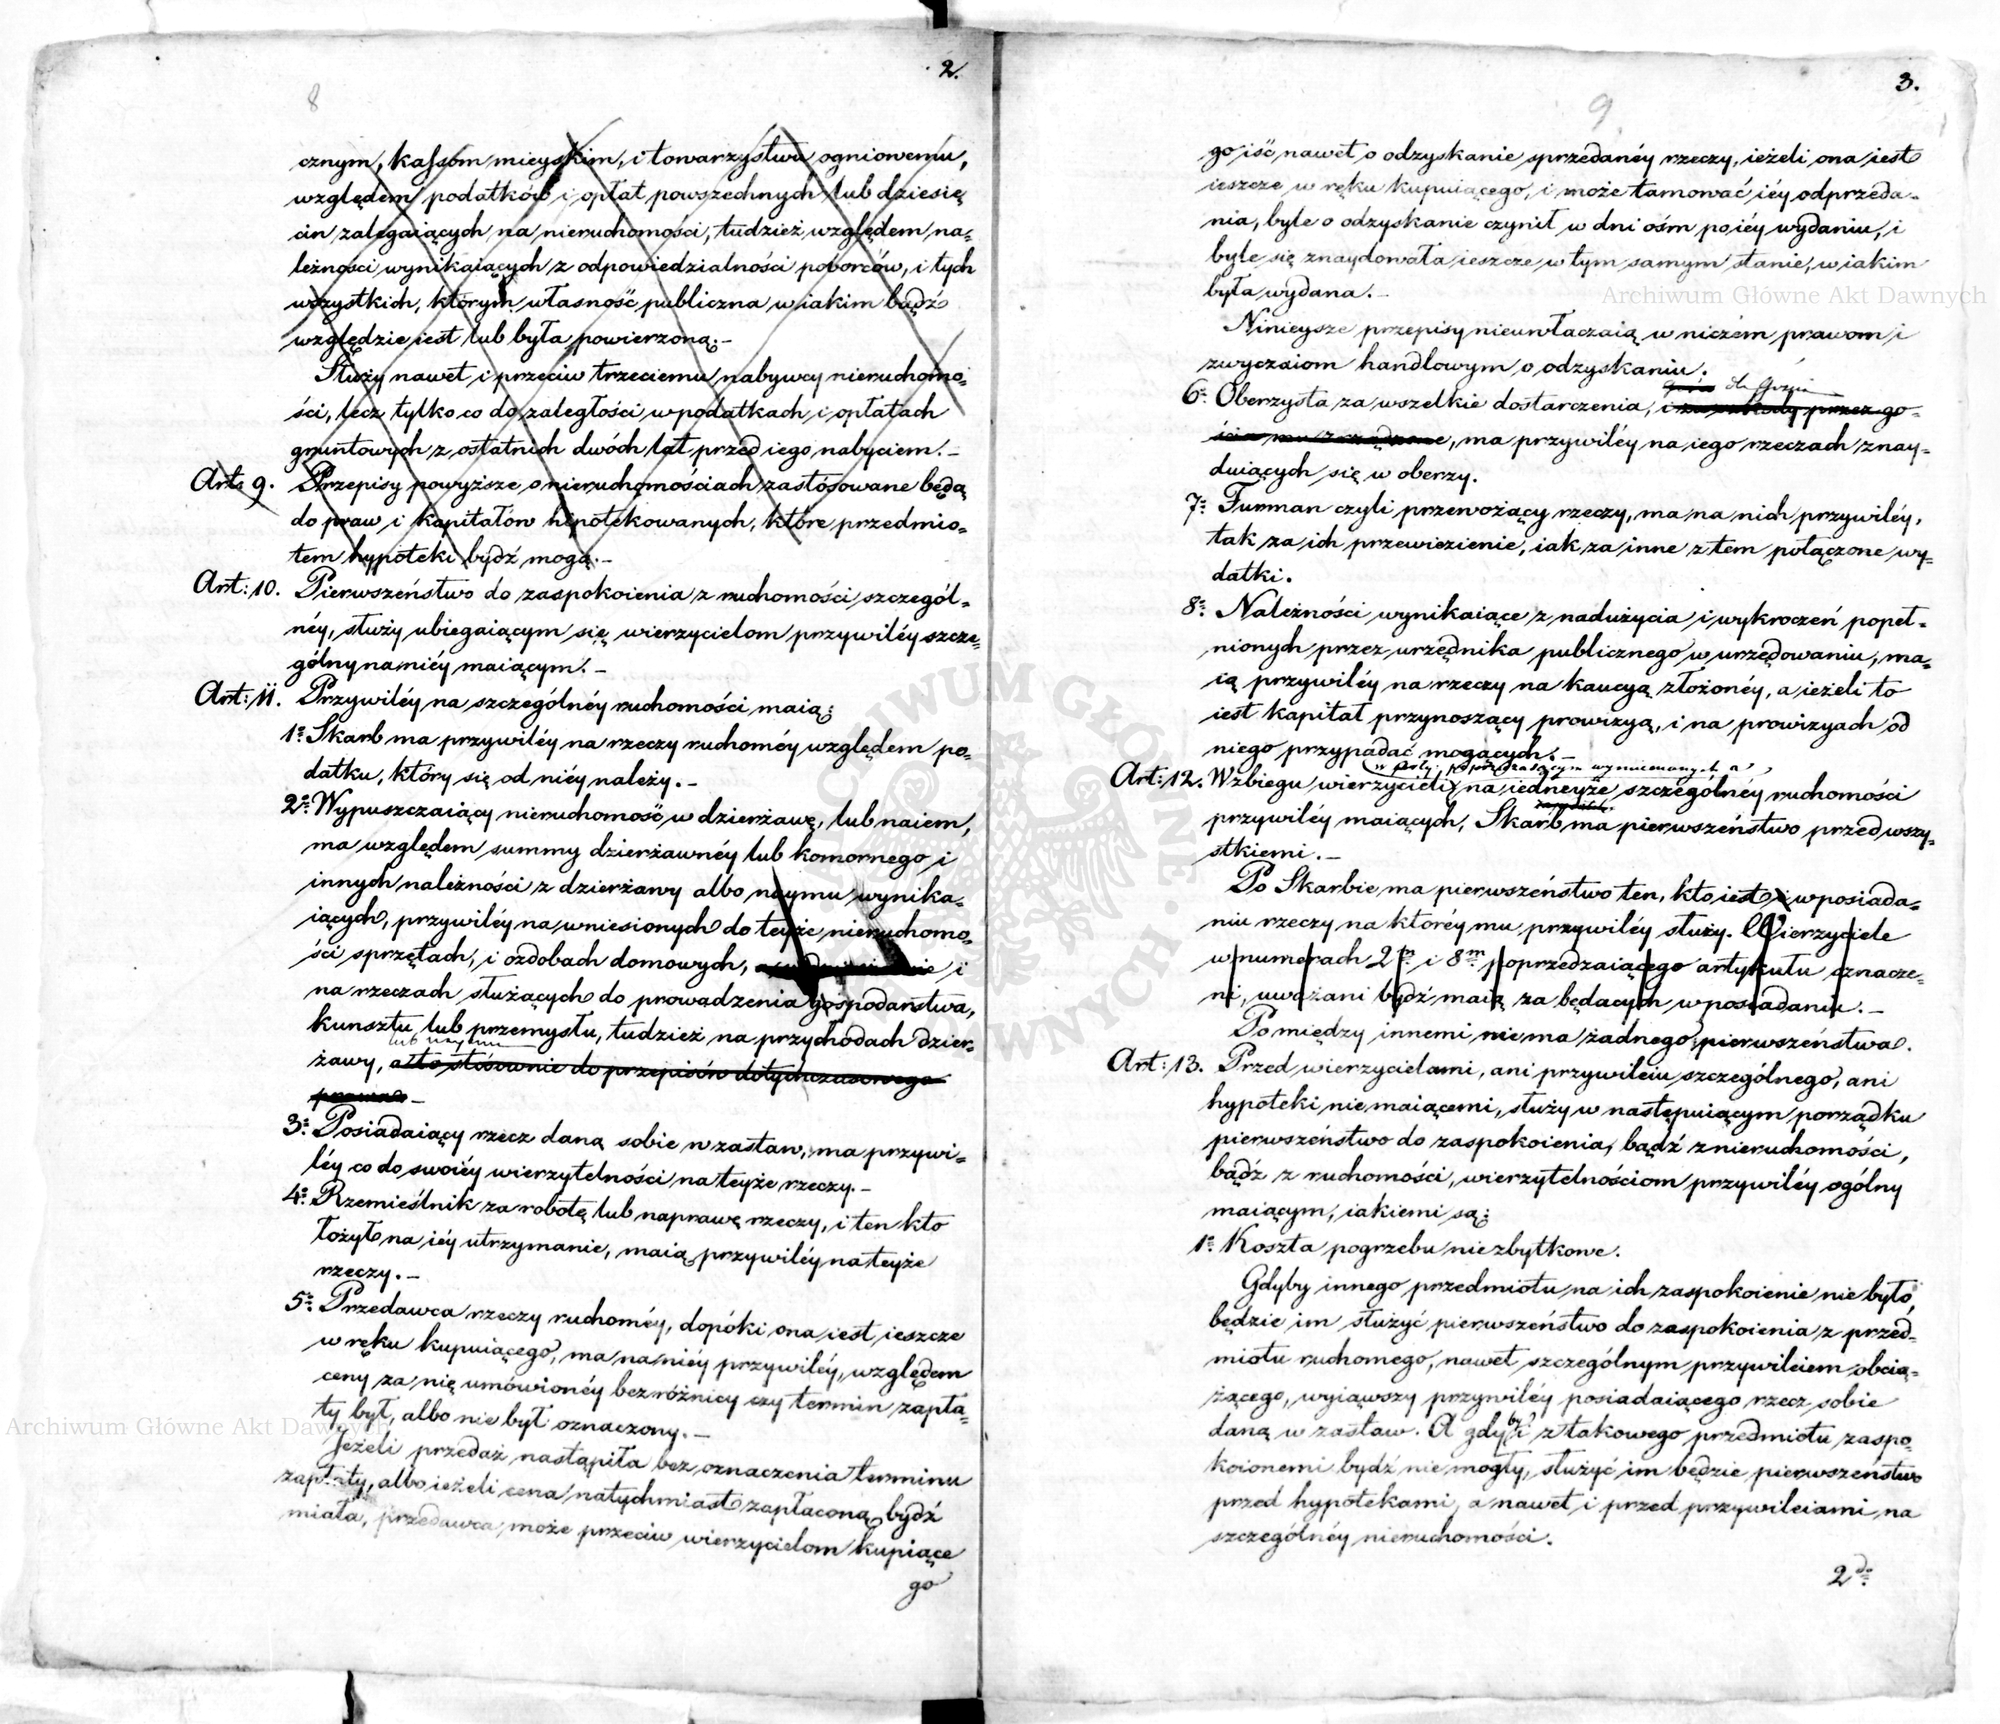 2.
8
cznym, kassom mieyskim, i towarzystwu ogniowemu,
względem podatków i opłat powszechnych lub dziesię
cin zalegaiących na nieruchomości, tudzież względem na=
leżności wynikaiących z odpowiedzialności poborców, i tych
wszystkich, którym własność publiczna w iakim bądź
względzie iest lub była powierzoną.–
Służy nawet i przeciw trzeciemu nabywcy nieruchomo=
ści, lecz tylko co do zaległości w podatkach i opłatach
gruntowych z ostatnich dwóch lat przed iego nabyciem.–
Art: 9. Przepisy powyższe o nieruchomościach zastósowane będą
do praw i kapitałów hipotekowanych, które przedmio=
tem hypoteki bydź mogą.–
Art: 10. Pierwszeństwo do zaspokoienia z ruchomości szczegól=
néy, służy ubiegaiącym się wierzycielom przywiléy szcze=
gólny na niéy maiącym.–
Art: 11. Przywiléy na szczególnéy ruchomości maią:
1º Skarb ma przywiléy na rzeczy ruchoméy względem po=
datku, który się od niéy należy.–
2º Wypuszczaiący nieruchomość w dzierżawę, lub naiem,
ma względem summy dzierżawnéy lub komornego i
innych należności z dzierżawy albo naymu wynika=
iących, przywiléy na wniesionych do teyże nieruchomo=
ści sprzętach, i ozdobach domowych, i
na rzeczach służących do prowadzenia gospodarstwa,
kunsztu lub przemysłu, tudzież na przychodach dzier=
lub naymu
żawy, a to stósownie do przepisów dotychczasowego
prawa –
3º Posiadaiący rzecz daną sobie w zastaw, ma przywi=
léy co do swoiéy wierzytelności na teyże rzeczy.–
4º Rzemieślnik za robotę lub naprawę rzeczy, i ten kto
łożył na iéy utrzymanie, maią przywiléy na teyże
rzeczy.–
5º Przedawca rzeczy ruchoméy, dopóki ona iest ieszcze
w ręku kupuiącego, ma na niéy przywiléy, względem
ceny za nię umówionéy bez różnicy czy termin zapła=
ty był, albo nie był oznaczony.–
Jeżeli przedaż nastąpiła bez oznaczenia terminu
zapłaty, albo ieżeli cena natychmiast zapłaconą bydź
miała, przedawca może przeciw wierzycielom kupiące
go
3.
9
go iść nawet o odzyskanie sprzedanéy rzeczy, ieżeli ona iest
ieszcze w ręku kupuiącego, i może tamować iéy odprzeda=
nia, byle o odzyskanie czynił w dni ośm po iéy wydaniu, i
byle się znaydowała ieszcze w tym samym stanie, w iakim
była wydana.–
Ninieysze przepisy nieuwłaczaią w niczém prawom i
zwyczaiom handlowym o odzyskaniu.
dla Gościa
6º Oberzysta za wszelkie dostarczenia, i za szkody przez go=
ścia mu zrządzone, ma przywiléy na iego rzeczach znay=
duiących się w oberzy.
7º Furman czyli przewożący rzeczy, ma na nich przywiléy,
tak za ich przewiezienie, iak za inne z tem połączone wy=
datki.
8º Należności wynikaiące z nadużycia i wykroczeń popeł=
nionych przez urzędnika publicznego w urzędowaniu, ma=
ią przywiléy na rzeczy na kaucyą złożonéy, a ieżeli to
iest kapitał przynoszący prowizyą, i na prowizyach od
niego przypadać mogących.–
w art: poprzedzaiącym wymienionych a
Art: 12. W zbiegu wierzycieli na iedneyże szczególnéy ruchomości
przywiléy maiących, Skarb ma pierwszeństwo przed wszy=
stkiemi.–
Po Skarbie ma pierwszeństwo ten, kto iest w posiada=
niu rzeczy na któréy mu przywiléy służy. Wierzyciele
w numerach 2m i 8m poprzedzaiącego artykułu oznacze=
ni, uważani bydź maią za będących w posiadaniu.–
Pomiędzy innemi niema żadnego pierwszeństwa.
Art: 13. Przed wierzycielami, ani przywileiu szczególnego, ani
hypoteki niemaiącemi, służy w następuiącym porządku
pierwszeństwo do zaspokoienia, bądź z nieruchomości,
bądź z ruchomości, wierzytelnościom przywiléy ogólny
maiącym, iakiemi są:
1º Koszta pogrzebu niezbytkowe.
Gdyby innego przedmiotu na ich zaspokoienie nie było,
będzie im służyć pierwszeństwo do zaspokoienia z przed=
miotu ruchomego, nawet szczególnym przywileiem obcią=
żącego, wyiąwszy przywiléy posiadaiącego rzecz sobie
daną w zastaw. A gdyby i z takowego przedmiotu zaspo=
koionemi bydź nie mogły, służyć im będzie pierwszeństwo
przed hypotekami, a nawet i przed przywileiami na
szczególnéy nieruchomości.
2do
Archiwum Główne Akt Dawnych
Archiwum Główne Akt Dawnych
ARCHIWUM GŁÓWNE AKT DAWNYCH